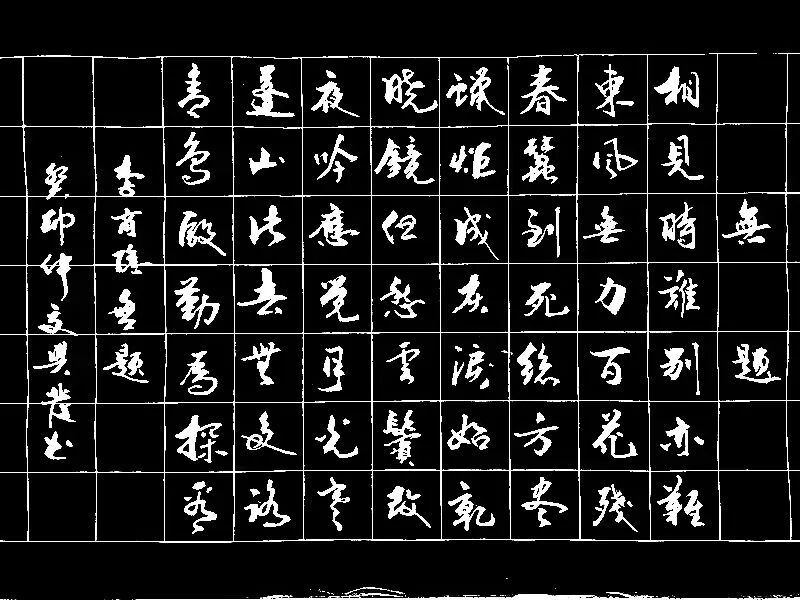 無題
相見時難別亦難
東風無力百花殘
春蠶到死絲方尽
蠟炬成灰淚始乾
曉鏡但愁雲鬢改
夜吟應覺月光寒
蓬山此去無多路
青鳥殷勤為探看
李商隱無題
癸卯仲文興發书